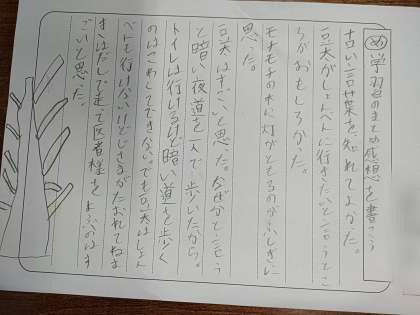 め 学習のまとめ感想を書こう
古い言葉を知れてよかった。
豆太がしょんべんに行きたいと言うとこ
ろがおもしろかった。
モチモチの木に灯がともるのがふしぎに
思った。
豆太はすごいと思った。なぜかと言う
と暗い夜道を一人で歩いたから。
トイレは行けるけど暗い道を歩く
のはこわくてできない。でも豆太はしょん
べんも行けないけどじさまがたおれてねま
きはだしで走って医者様をよぶのはす
ごいと思った。